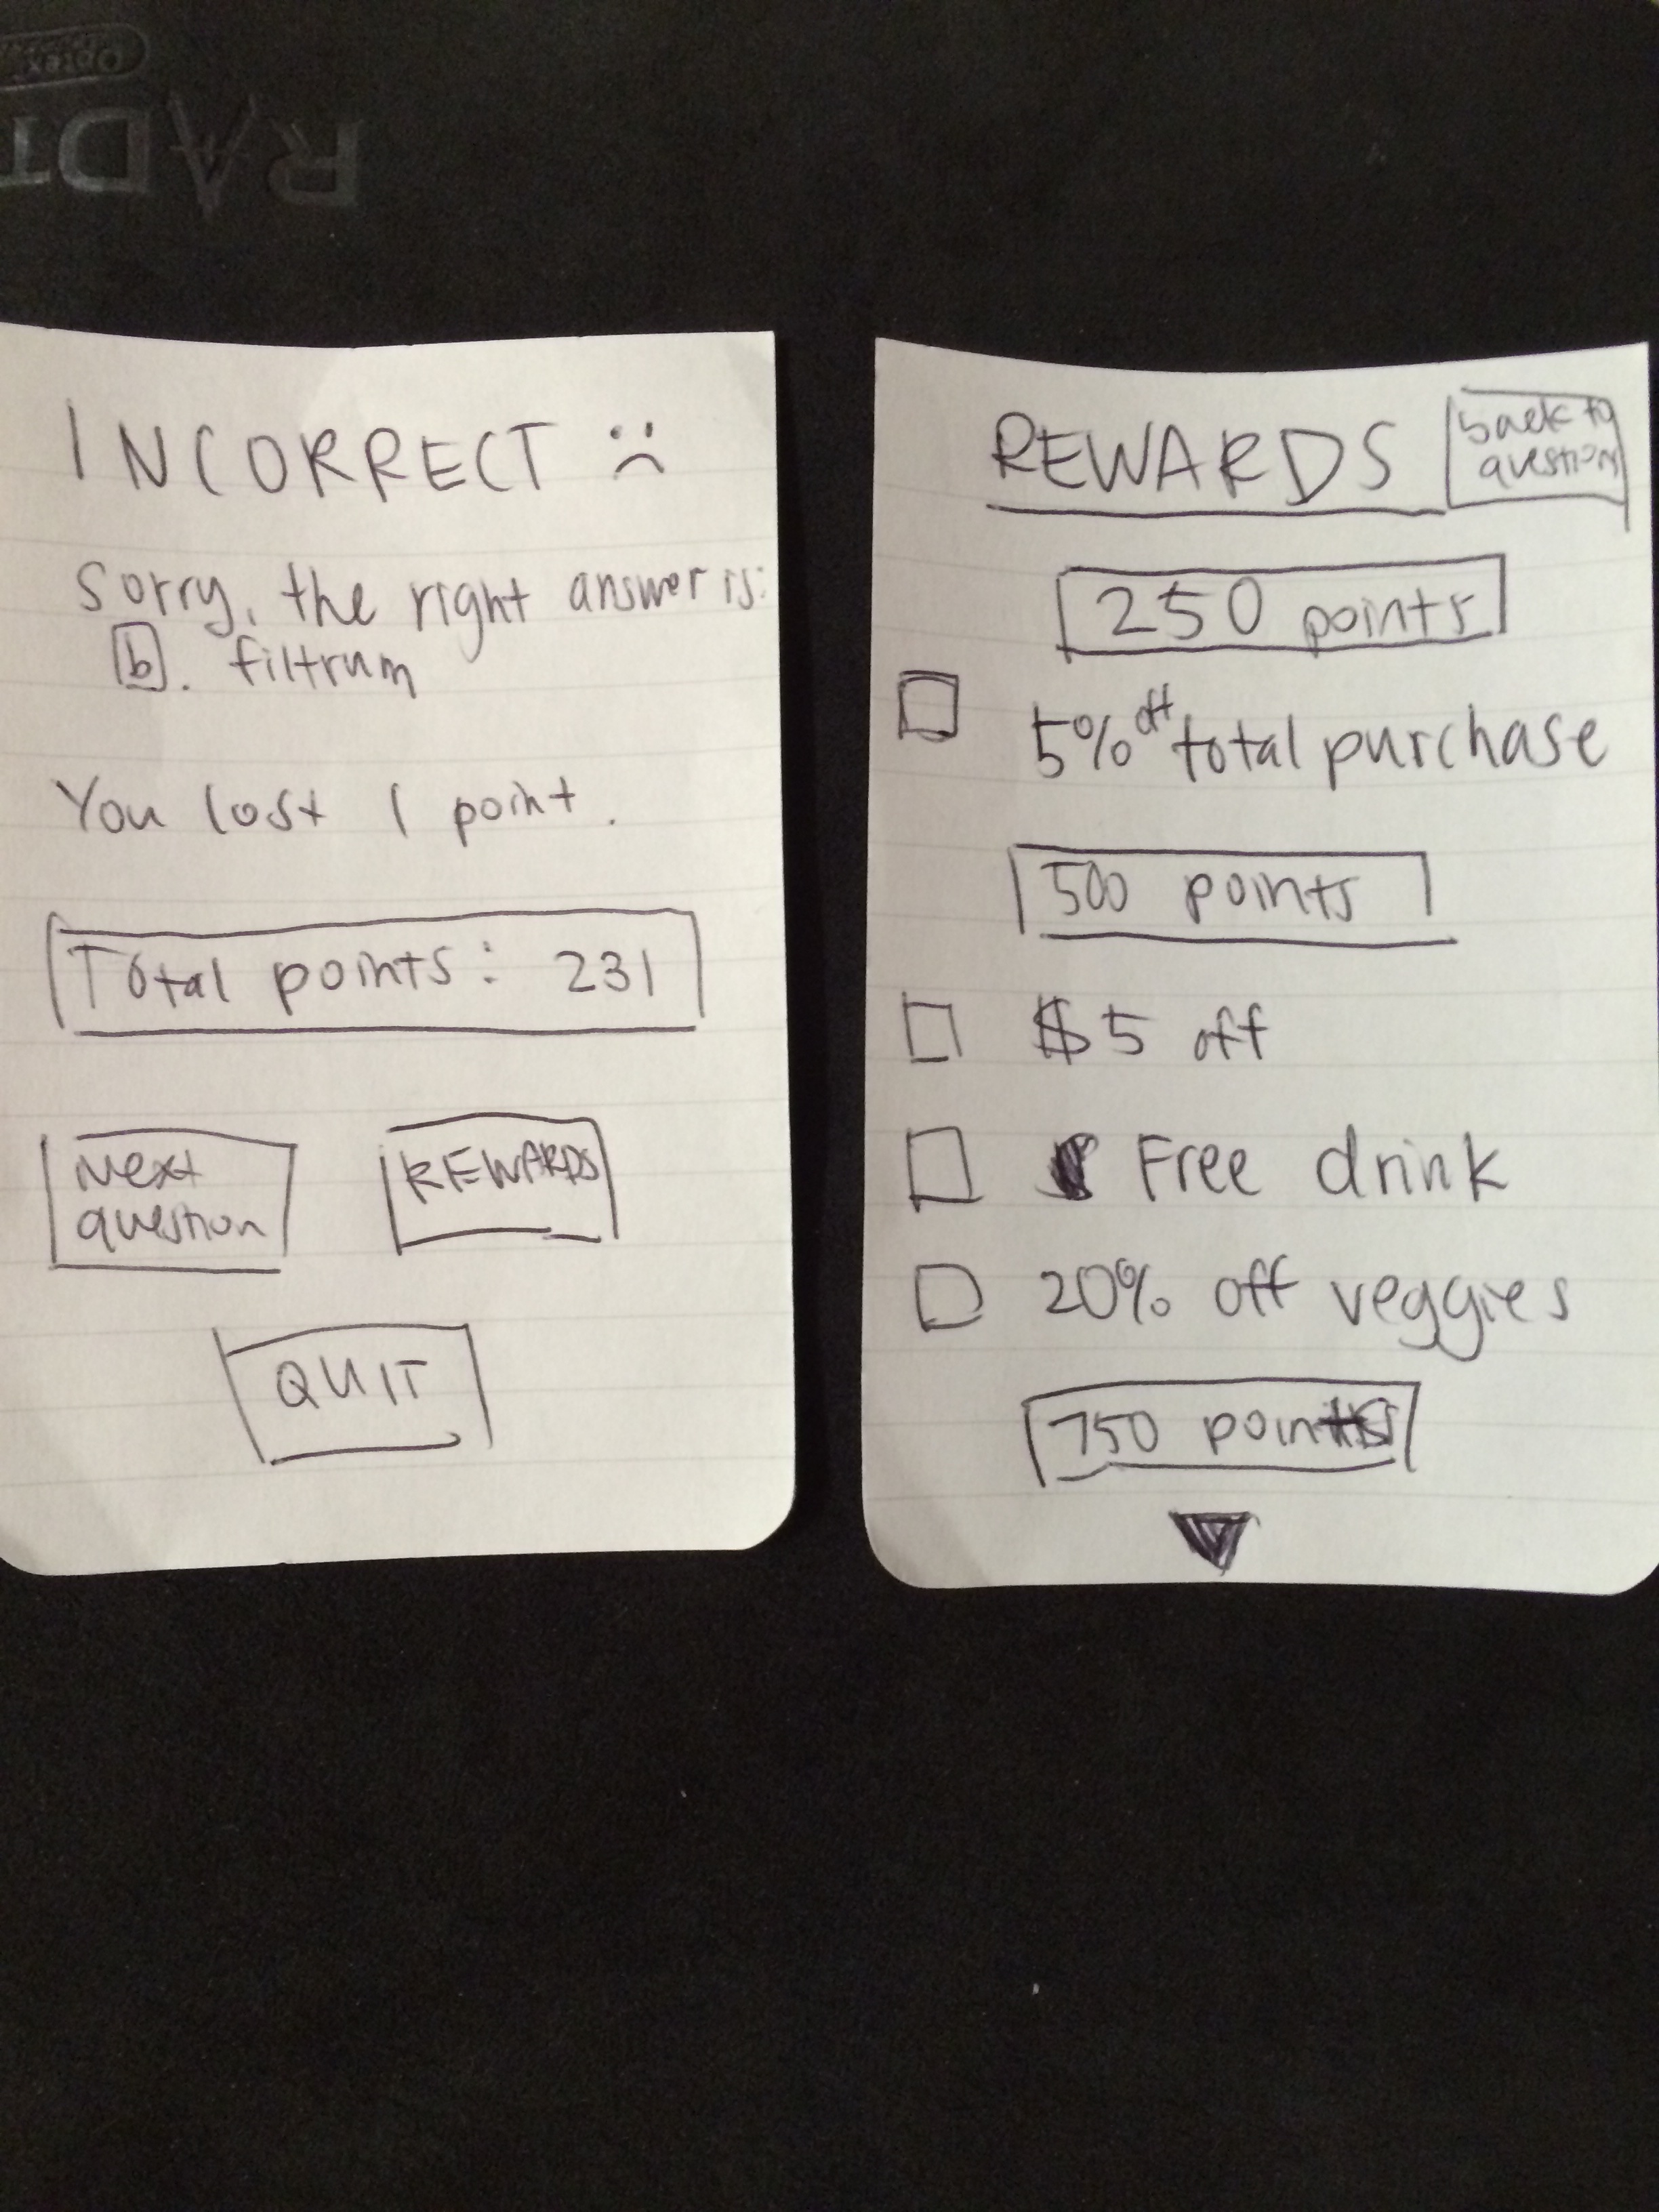 RADT
Optex
INCORRECT :(
Sorry, the right answer is:
b. filtrum
You lost 1 point.
Total points: 231
Next
question
REWARDS
QUIT
REWARDS
back to
question
250 points
5% off total purchase
500 points
$5 off
Free drink
20% off veggies
750 points